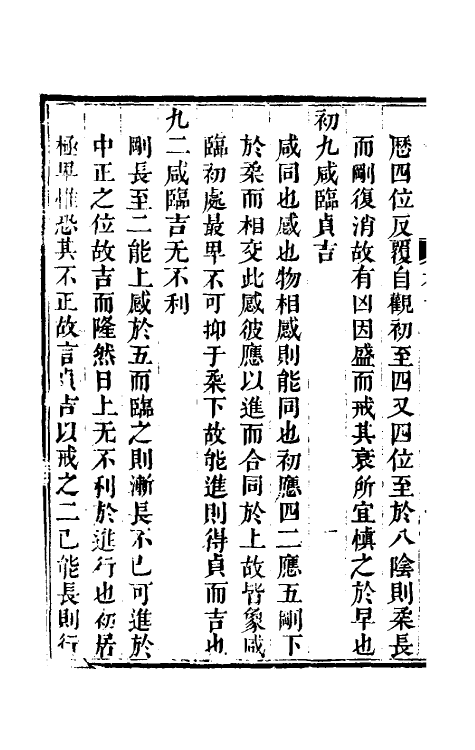 歷四位反覆自觀初至四又四位至於八陰則柔長
而剛復消故有凶因盛而戒其衰所宜慎之於早也
初九咸臨貞吉
咸同也感也物相感則能同也初應四二應五剛下
於柔而相交此感彼應以進而合同於上故皆象咸
臨初處最卑不可抑于柔下故能進則得貞而吉也
九二咸臨吉无不利
剛長至二能上感於五而臨之則漸長不已可進於
中正之位故吉而隆然日上无不利於進行也初居
極卑惟恐其不正故言貞吉以戒之二已能長則行